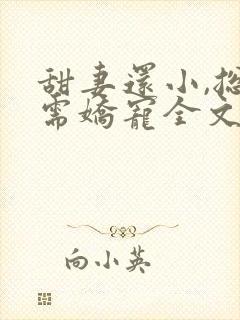 甜妻還小,総
需嬌寵全文
向小英